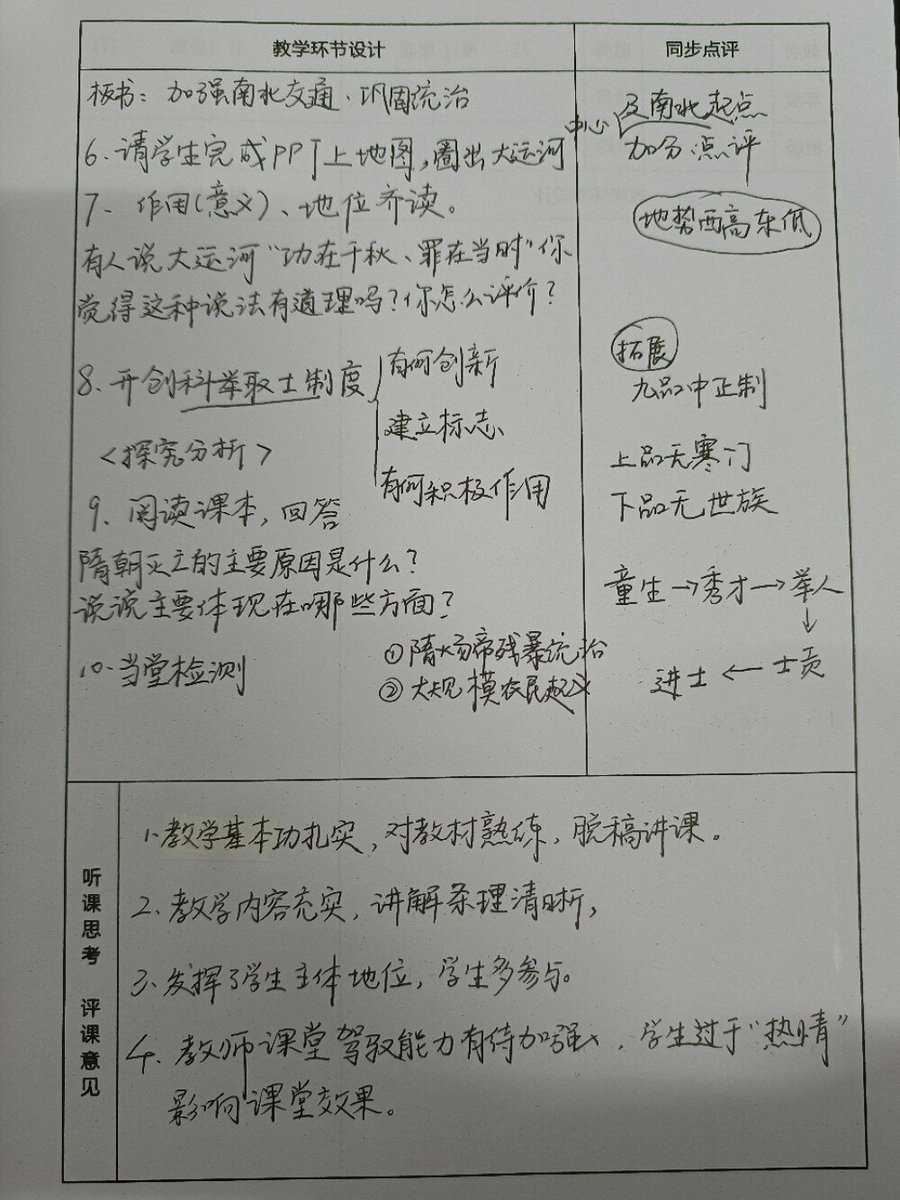 教学环节设计
同步点评
板书：加强南北交通、巩固统治
6、请学生完成PPT上地图，圈出大运河
7、作用(意义)、地位齐读。
有人说大运河“功在千秋、罪在当时”你
觉得这种说法有道理吗？你怎么评价？
8、开创科举取士制度
有何创新
建立标志
有何积极作用
<探究分析>
9、阅读课本，回答
隋朝灭亡的主要原因是什么？
说说主要体现在哪些方面？
①隋炀帝残暴统治
②大规模农民起义
10、当堂检测
中心
及南北起点
加分点评
地势西高东低
拓展
九品中正制
上品无寒门
下品无世族
童生→秀才→举人
↓
进士←士贡
听课思考 评课意见
1、教学基本功扎实，对教材熟练，脱稿讲课。
2、教学内容充实，讲解条理清晰，
3、发挥了学生主体地位，学生多参与。
4、教师课堂驾驭能力有待加强，学生过于“热情”
影响课堂效果。